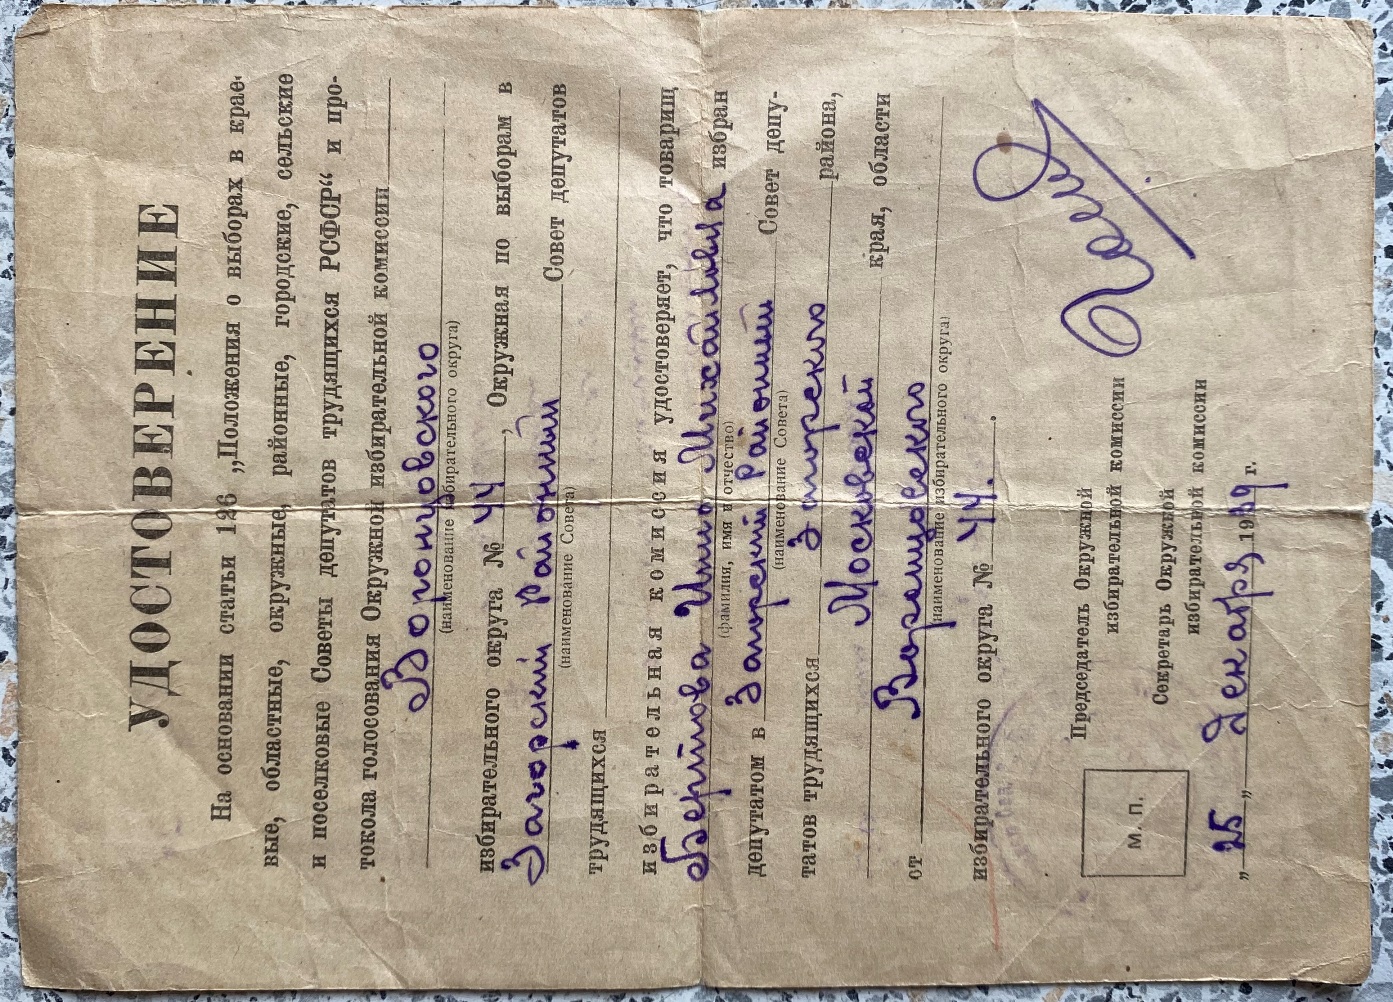 УДОСТОВЕРЕНИЕ
На основании статьи 126 „Положения о выборах в крае-
вые, областные, окружные, районные, городские, сельские
и поселковые Советы депутатов трудящихся РСФСР“ и про-
токола голосования Окружной избирательной комиссии
Воронцовского
(наименование избирательного округа)
избирательного округа № 44, Окружная по выборам в
Загорский Районный Совет депутатов
(наименование Совета)
трудящихся
избирательная комиссия удостоверяет, что товарищ
Михайловна избран
(фамилия, имя и отчество)
депутатом в Загорский Районный Совет депу-
(наименование Совета)
татов трудящихся Загорского района,
Московской края, области
от Воронцовского
(наименование избирательного округа)
избирательного округа № 44.
Председатель Окружной
избирательной комиссии
Секретарь Окружной
избирательной комиссии
М. П.
„25„ Декабря 1939 г.